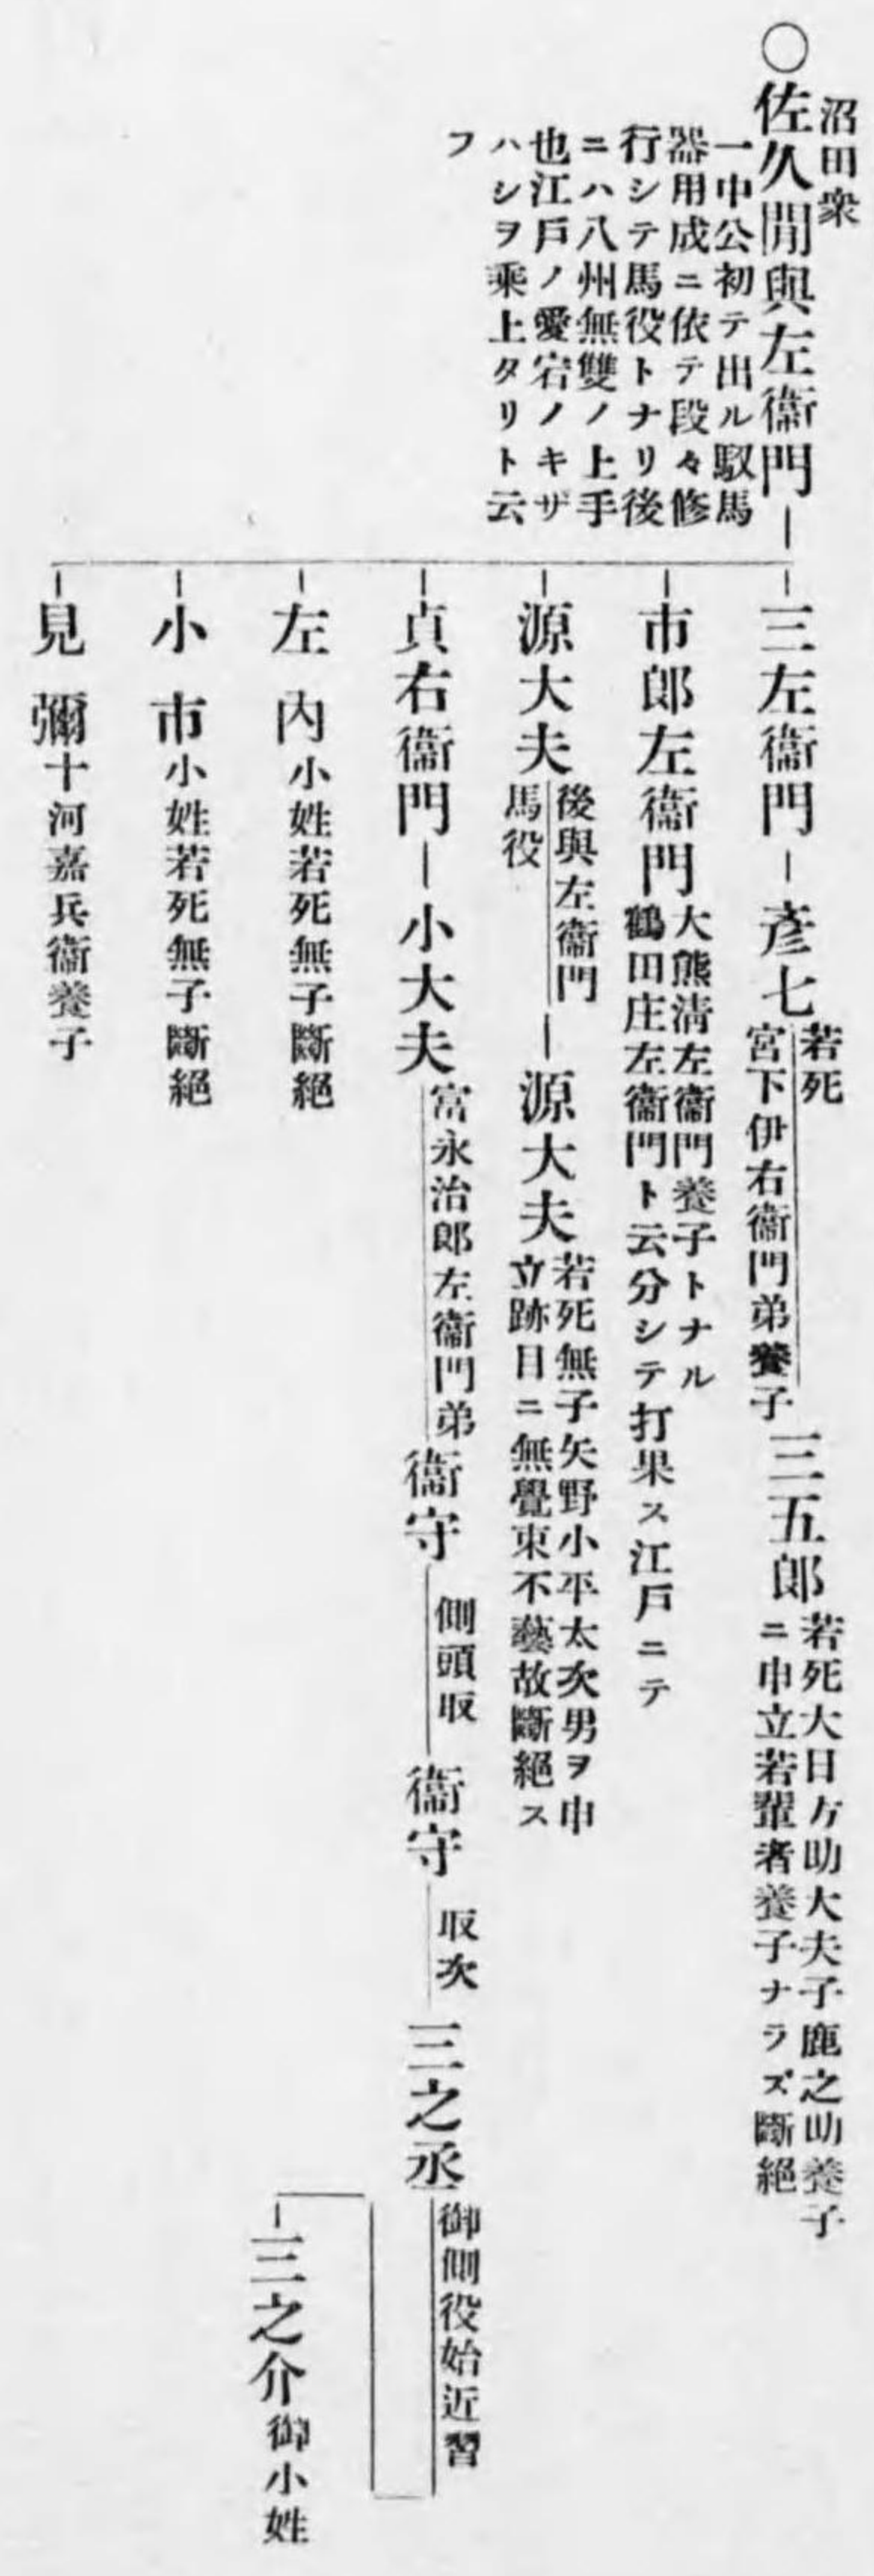 沼田衆
○佐久間與左衞門
一中公初テ出ル馭馬
器用成ニ依テ段々修
行シテ馬役トナリ後
ニハ八州無雙ノ上手
也江戸ノ愛宕ノキザ
ハシヲ乘上タリト云
フ
三左衞門
彥七
若死
宮下伊右衞門弟養子
三五郎
若死大日方助大夫子鹿之助養子
ニ申立若輩者養子ナラズ斷絕
市郎左衞門
大熊淸左衞門養子トナル
鶴田庄左衞門ト云分シテ打果ス江戸ニテ
源大夫
後與左衞門
馬役
源大夫
若死無子矢野小平太次男ヲ申
立跡目ニ無覺束不藝故斷絕ス
貞右衞門
小大夫
富永治郎左衞門弟
衞守
側頭取
衞守
取次
三之丞
御側役始近習
三之介御小姓
左內小姓若死無子斷絕
小市小姓若死無子斷絕
見彌十河嘉兵衞養子